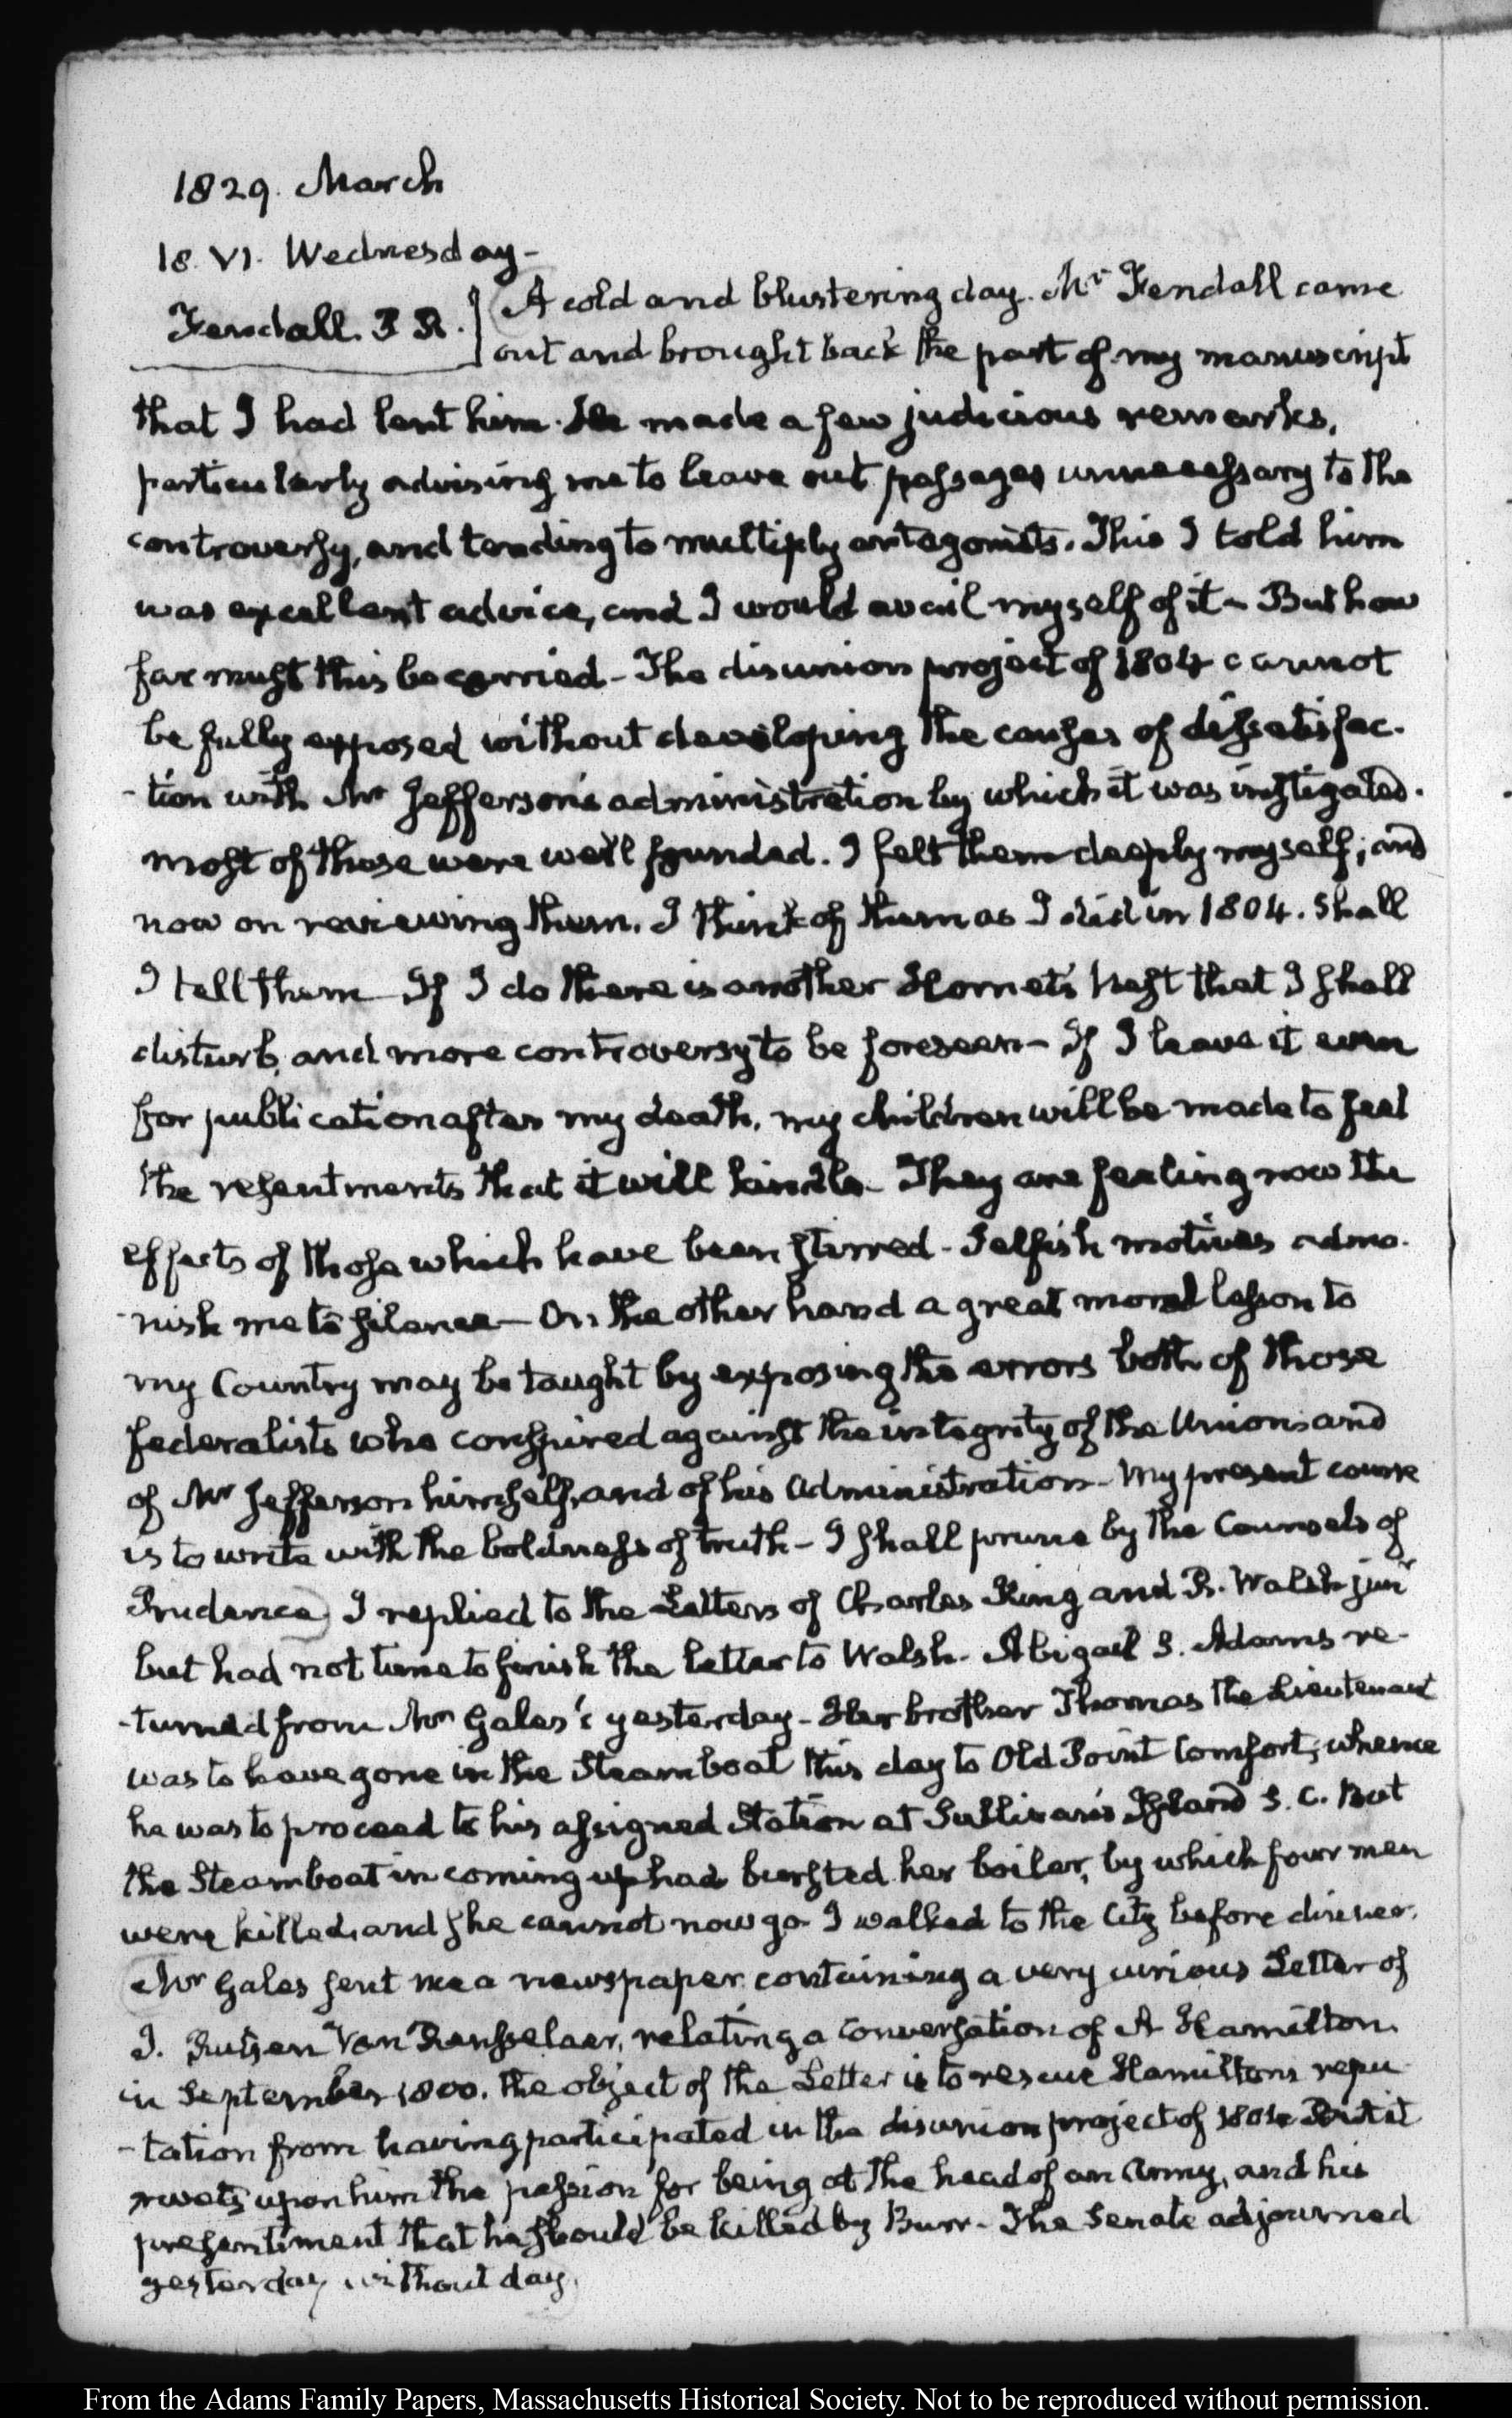 1829. March
18. VI. Wednesday-
Fendall. P R.
A cold and blustering day. Mr Fendall came
out and brought back the part of my manuscript
that I had lent him. He made a few judicious remarks,
particularly advising me to leave out passages unnecessary to the
controversy, and tending to multiply antagonists. This I told him
was excellent advice, and I would avail myself of it - But how
far must this be carried - The disunion project of 1804 cannot
be fully exposed without developing the causes of dissatisfac-
-tion with Mr Jefferson's administration by which it was instigated.
most of those were well founded. I felt them deeply myself; and
now on reviewing them. I think of them as I did in 1804. Shall
I tell them - If I do there is another Hornet's Nest that I shall
disturb, and more controversy to be foreseen - If I leave it even
for publication after my death, my children will be made to feel
the resentments that it will kindle - They are feeling now the
effects of those which have been stirred - Selfish motives admo-
-nish me to silence - On the other hand a great moral lesson to
my Country may be taught by exposing the errors both of those
federalists who conspired against the integrity of the Union and
of Mr Jefferson himself, and of his Administration - My present course
is to write with the boldness of truth - I shall prune by the Counsels of
Prudence) I replied to the Letters of Charles King and R. Walsh junr
but had not time to finish the letter to Walsh - Abigail S. Adams re-
-turned from Mrs Gales's yesterday - Her brother Thomas the Lieutenant
was to have gone in the Steam boat this day to Old Point Comfort, whence
he was to proceed to his assigned Station at Sullivan's Island S. C. But
the Steam boat in coming up had bursted her boiler, by which four men
were killed, and she cannot now go. I walked to the City before dinner.
Mr Gales sent me a newspaper containing a very curious Letter of
J. Rutsen Van Rensselaer, relating a conversation of A Hamilton
in September 1800. The object of the Letter is to rescue Hamilton's repu
-tation from having participated in the disunion project of 1804 But it
rivets upon him the passion for being at the head of an Army, and his
presentiment that he should be killed by Burr - The Senate adjourned
yesterday without day.
From the Adams Family Papers, Massachusetts Historical Society. Not to be reproduced without permission.